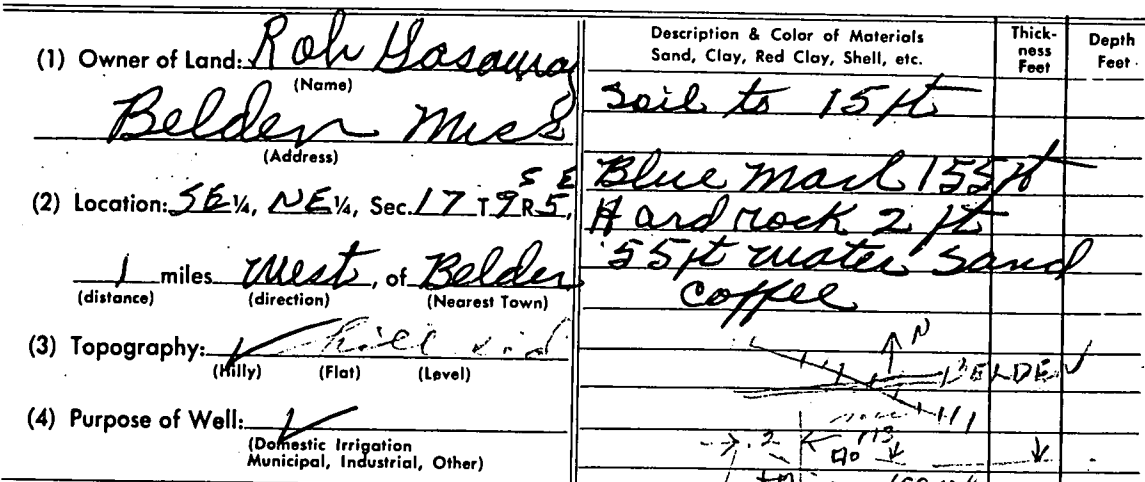 (1) Owner of Land: Rob Gasaway
(Name)
Belden Miss
(Address)
(2) Location: SE ¼, NE ¼, Sec. 17 T 9 S R 5 E,
1 miles West, of Belden
(distance) (direction) (Nearest Town)
(3) Topography: hill sid
(Hilly) (Flat) (Level)
(4) Purpose of Well:
(Domestic Irrigation
Municipal, Industrial, Other)
Description & Color of Materials
Sand, Clay, Red Clay, Shell, etc.
Thick-
ness
Feet
Depth
Feet
Soil to 15 ft
Blue Marl 155 ft
Hard rock 2 ft
55 ft water sand
coffee
N
BELDEN
.2